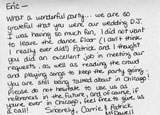 Eric—
What a wonderful party... we are so
grateful that you were our wedding DJ.
I was having so much fun, I did not want
to leave the dance floor (I can't think
I really ever did!) Patrick and I thought
you did an excellent job meeting our
requests, as well as reading the crowd
and playing songs to keep the party going.
You are still being raved about in Chicago!
Please do not hesitate to use us as
references in the future, and of course, if
you're ever in Chicago, feel free to give us
a call!
Sincerely, Carrie & Patrick